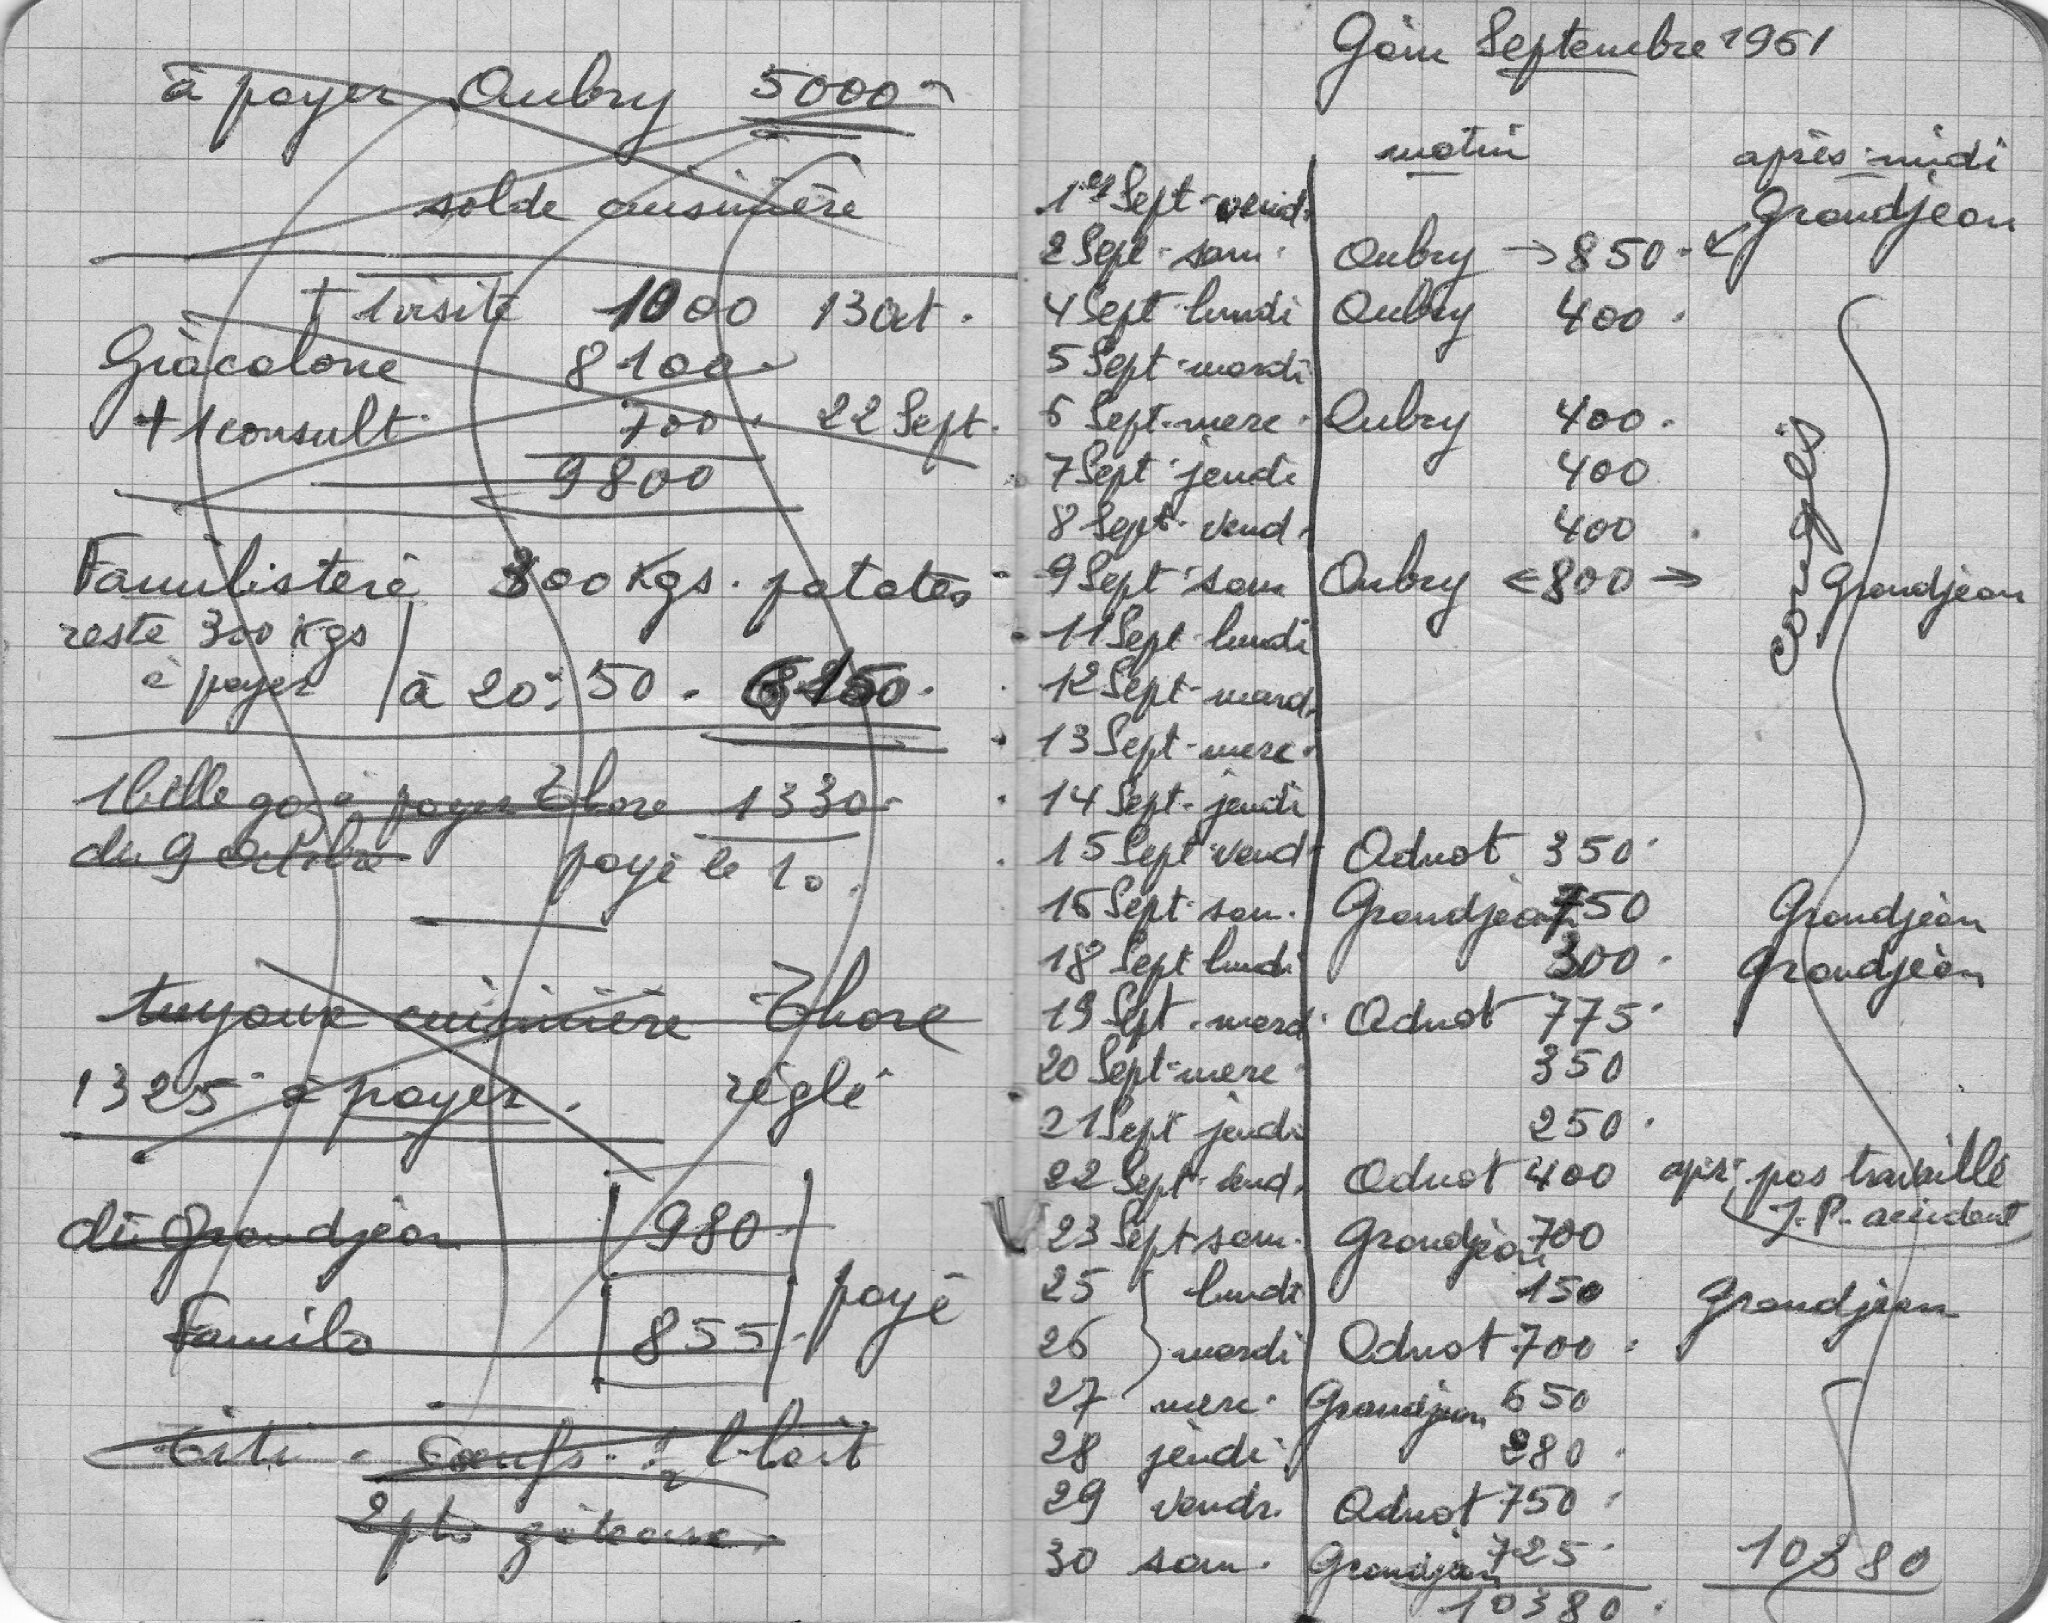 à payer Aubry 5000
solde cuisinière
+ 1 visite 1000 13 Oct.
Giacolone 8100
+ 1 consult. 700 22 Sept.
9800
Familistère 300 Kgs. patates
reste 300 Kgs
à payer à 20. 50. 6150.
1 blle gaz à payer Thore 1330
du 9 Octobre payé le 10.
tuyaux cuisinière Thore
1325 à payer. réglé
dû Grandjean 980
Familis 855 payé
Titi. Oeufs. l. lait
2 pts gâteaux.
Gain Septembre 1961
matin après-midi
1er Sept. vend. Grandjean
2 Sept. sam. Aubry → 850.
4 Sept lundi Aubry 400.
5 Sept. mardi
6 Sept. merc. Aubry 400.
7 Sept. jeudi 400
8 Sept. vend. 400
congés
9 Sept. sam Aubry ← 800 → Grandjean
11 Sept. lundi
12 Sept. mard.
13 Sept. merc.
14 Sept. jeudi
15 Sept. vend. Adnot 350
16 Sept. sam. Grandjean 750 Grandjean
18 Sept lundi 300. Grandjean
19 Sept. mardi Adnot 775
20 Sept. merc 350
21 Sept jeudi 250.
22 Sept. vend. Adnot 400 apr. pas travaillé
J.P. accident
23 Sept sam. Grandjean 700
25 lundi 150 Grandjean
26 mardi Adnot 700
27 merc. Grandjean 650
28 jeudi 280
29 vendr. Adnot 750
30 sam. Grandjean 725 10380
10380.